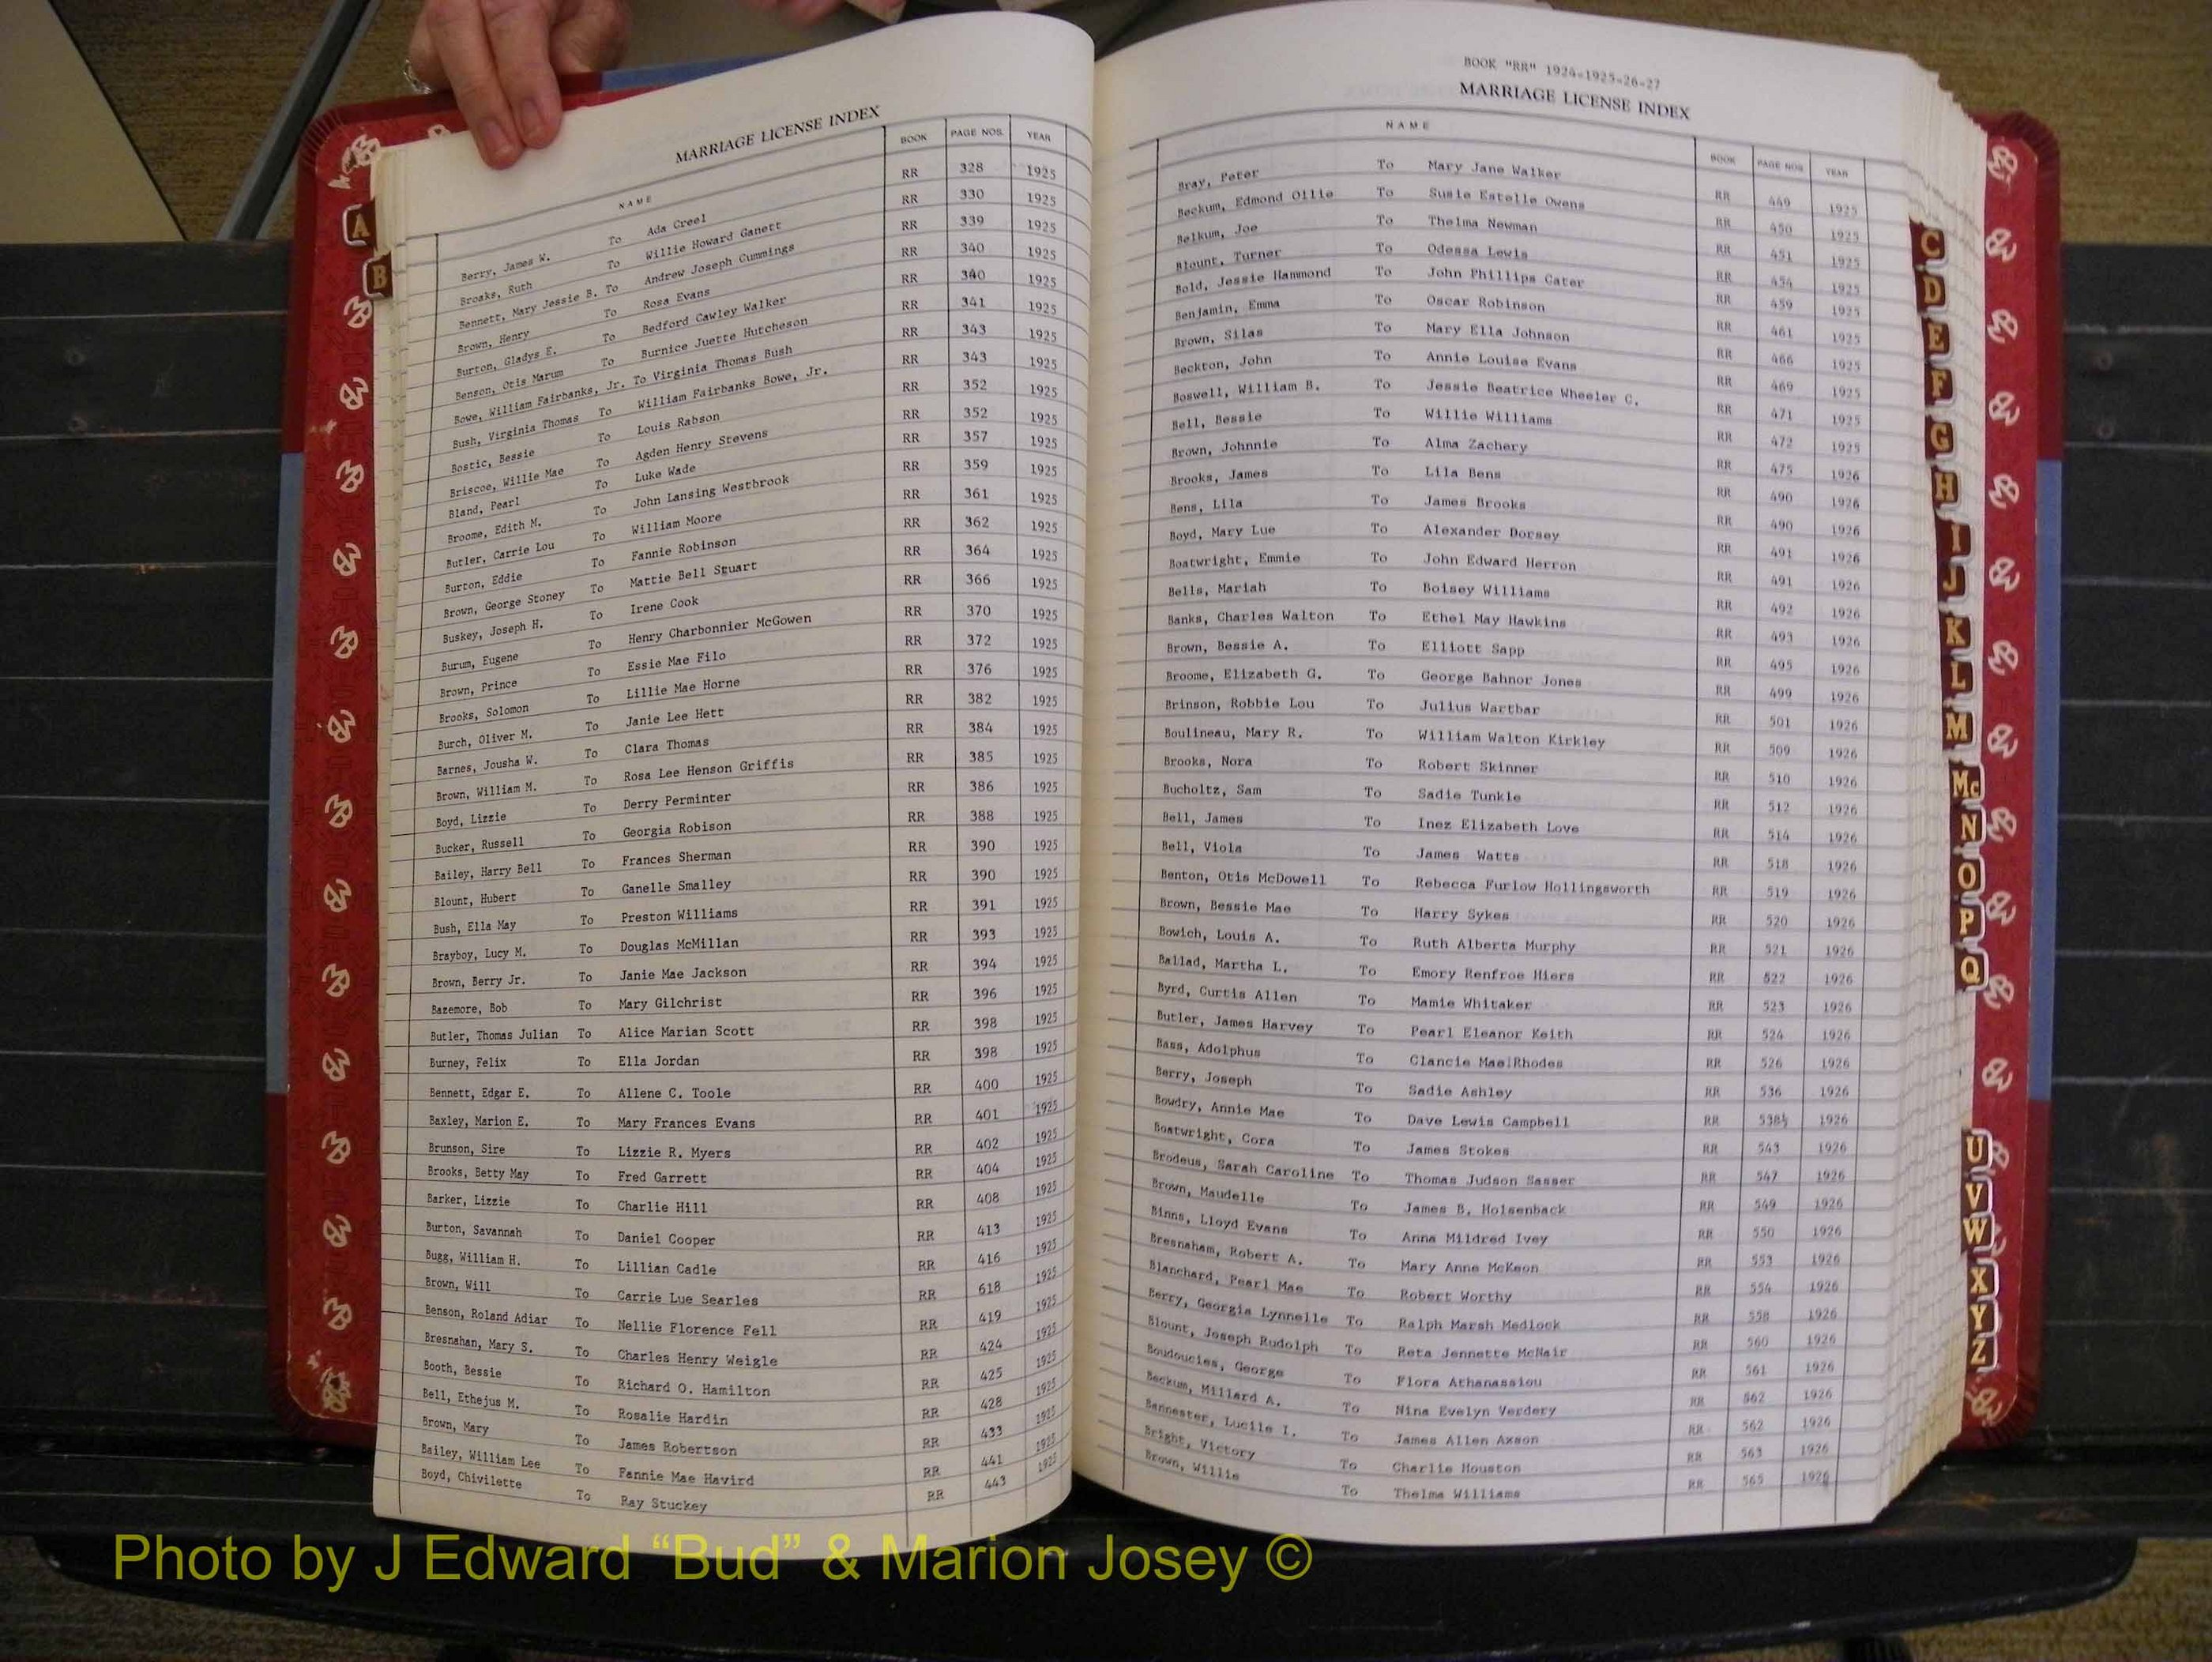 MARRIAGE LICENSE INDEX
NAME BOOK PAGE NOS. YEAR
Berry, James W. To Ada Creel RR 328 1925
Broaks, Ruth To Willie Howard Ganett RR 330 1925
Bennett, Mary Jessie B. To Andrew Joseph Cummings RR 339 1925
Brown, Henry To Rosa Evans RR 340 1925
Burton, Gladys E. To Bedford Cawley Walker RR 340 1925
Benson, Otis Marum To Burnice Juette Hutcheson RR 341 1925
Bowe, William Fairbanks, Jr. To Virginia Thomas Bush RR 343 1925
Bush, Virginia Thomas To William Fairbanks Bowe, Jr. RR 343 1925
Bostic, Bessie To Louis Rabson RR 352 1925
Briscoe, Willie Mae To Agden Henry Stevens RR 352 1925
Bland, Pearl To Luke Wade RR 357 1925
Broome, Edith M. To John Lansing Westbrook RR 359 1925
Butler, Carrie Lou To William Moore RR 361 1925
Burton, Eddie To Fannie Robinson RR 362 1925
Brown, George Stoney To Mattie Bell Stuart RR 364 1925
Buskey, Joseph H. To Irene Cook RR 366 1925
Burum, Eugene To Henry Charbonnier McGowen RR 370 1925
Brown, Prince To Essie Mae Filo RR 372 1925
Brooks, Solomon To Lillie Mae Horne RR 376 1925
Burch, Oliver M. To Janie Lee Hett RR 382 1925
Barnes, Jousha W. To Clara Thomas RR 384 1925
Brown, William M. To Rosa Lee Henson Griffis RR 385 1925
Boyd, Lizzie To Derry Perminter RR 386 1925
Bucker, Russell To Georgia Robison RR 388 1925
Bailey, Harry Bell To Frances Sherman RR 390 1925
Blount, Hubert To Ganelle Smalley RR 390 1925
Bush, Ella May To Preston Williams RR 391 1925
Brayboy, Lucy M. To Douglas McMillan RR 393 1925
Brown, Berry Jr. To Janie Mae Jackson RR 394 1925
Bazemore, Bob To Mary Gilchrist RR 396 1925
Butler, Thomas Julian To Alice Marian Scott RR 398 1925
Burney, Felix To Ella Jordan RR 398 1925
Bennett, Edgar E. To Allene C. Toole RR 400 1925
Baxley, Marion E. To Mary Frances Evans RR 401 1925
Brunson, Sire To Lizzie R. Myers RR 402 1925
Brooks, Betty May To Fred Garrett RR 404 1925
Barker, Lizzie To Charlie Hill RR 408 1925
Burton, Savannah To Daniel Cooper RR 413 1925
Bugg, William H. To Lillian Cadle RR 416 1925
Brown, Will To Carrie Lue Searles RR 618 1925
Benson, Roland Adiar To Nellie Florence Fell RR 419 1925
Bresnahan, Mary S. To Charles Henry Weigle RR 424 1925
Booth, Bessie To Richard O. Hamilton RR 425 1925
Bell, Ethejus M. To Rosalie Hardin RR 428 1925
Brown, Mary To James Robertson RR 433 1925
Bailey, William Lee To Fannie Mae Havird RR 441 1925
Boyd, Chivilette To Ray Stuckey RR 443 1925
A
B
BOOK "RR" 1924-1925-26-27
MARRIAGE LICENSE INDEX
NAME BOOK PAGE NOS. YEAR
Bray, Peter To Mary Jane Walker RR 449 1925
Beckum, Edmond Ollie To Susie Estelle Owens RR 450 1925
Belkum, Joe To Thelma Newman RR 451 1925
Blount, Turner To Odessa Lewis RR 454 1925
Bold, Jessie Hammond To John Phillips Cater RR 459 1925
Benjamin, Emma To Oscar Robinson RR 461 1925
Brown, Silas To Mary Ella Johnson RR 466 1925
Beckton, John To Annie Louise Evans RR 469 1925
Boswell, William B. To Jessie Beatrice Wheeler C. RR 471 1925
Bell, Bessie To Willie Williams RR 472 1925
Brown, Johnnie To Alma Zachery RR 475 1926
Brooks, James To Lila Bens RR 490 1926
Bens, Lila To James Brooks RR 490 1926
Boyd, Mary Lue To Alexander Dorsey RR 491 1926
Boatwright, Emmie To John Edward Herron RR 491 1926
Bells, Mariah To Boisey Williams RR 492 1926
Banks, Charles Walton To Ethel May Hawkins RR 493 1926
Brown, Bessie A. To Elliott Sapp RR 495 1926
Broome, Elizabeth G. To George Bahnor Jones RR 499 1926
Brinson, Robbie Lou To Julius Wartbar RR 501 1926
Boulineau, Mary R. To William Walton Kirkley RR 509 1926
Brooks, Nora To Robert Skinner RR 510 1926
Bucholtz, Sam To Sadie Tunkle RR 512 1926
Bell, James To Inez Elizabeth Love RR 514 1926
Bell, Viola To James Watts RR 518 1926
Benton, Otis McDowell To Rebecca Furlow Hollingsworth RR 519 1926
Brown, Bessie Mae To Harry Sykes RR 520 1926
Bowich, Louis A. To Ruth Alberta Murphy RR 521 1926
Ballad, Martha L. To Emory Renfroe Hiers RR 522 1926
Byrd, Curtis Allen To Mamie Whitaker RR 523 1926
Butler, James Harvey To Pearl Eleanor Keith RR 524 1926
Bass, Adolphus To Clancie Mae Rhodes RR 526 1926
Berry, Joseph To Sadie Ashley RR 536 1926
Bowdry, Annie Mae To Dave Lewis Campbell RR 538½ 1926
Boatwright, Cora To James Stokes RR 543 1926
Brodeus, Sarah Caroline To Thomas Judson Sasser RR 547 1926
Brown, Maudelle To James B. Holsenback RR 549 1926
Binns, Lloyd Evans To Anna Mildred Ivey RR 550 1926
Bresnaham, Robert A. To Mary Anne McKeon RR 553 1926
Blanchard, Pearl Mae To Robert Worthy RR 554 1926
Berry, Georgia Lynnelle To Ralph Marsh Medlock RR 558 1926
Blount, Joseph Rudolph To Reta Jennette McNair RR 560 1926
Boudoucies, George To Flora Athanassiou RR 561 1926
Beckum, Millard A. To Nina Evelyn Verdery RR 562 1926
Bannester, Lucile I. To James Allen Axson RR 562 1926
Bright, Victory To Charlie Houston RR 563 1926
Brown, Willie To Thelma Williams RR 565 1926
C
D
E
F
G
H
I
J
K
L
M
Mc
N
O
P
Q
U
V
W
X
Y
Z
Photo by J Edward “Bud” & Marion Josey ©